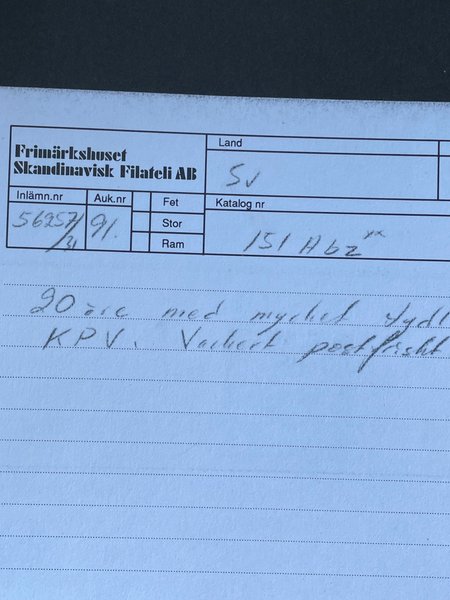 Frimärkshuset
Skandinavisk Filateli AB
Land
Sv
Inlämn.nr
Auk.nr
Fet
Katalog nr
56257/31
91.
Stor
Ram
151 A bz xx
20 öre med mycket tydl
KPV. Vackert postfriskt